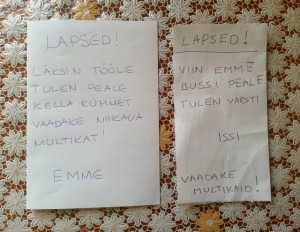 LAPSED!
LÄKSIN TÖÖLE.
TULEN PEALE
KELLA KÜMMET
VAADAKE NIIKAUA
MULTIKAT!
EMME
LAPSED!
VIIN EMME
BUSSI PEALE
TULEN VARSTI
ISSI
VAADAKE
MULTIKAID!